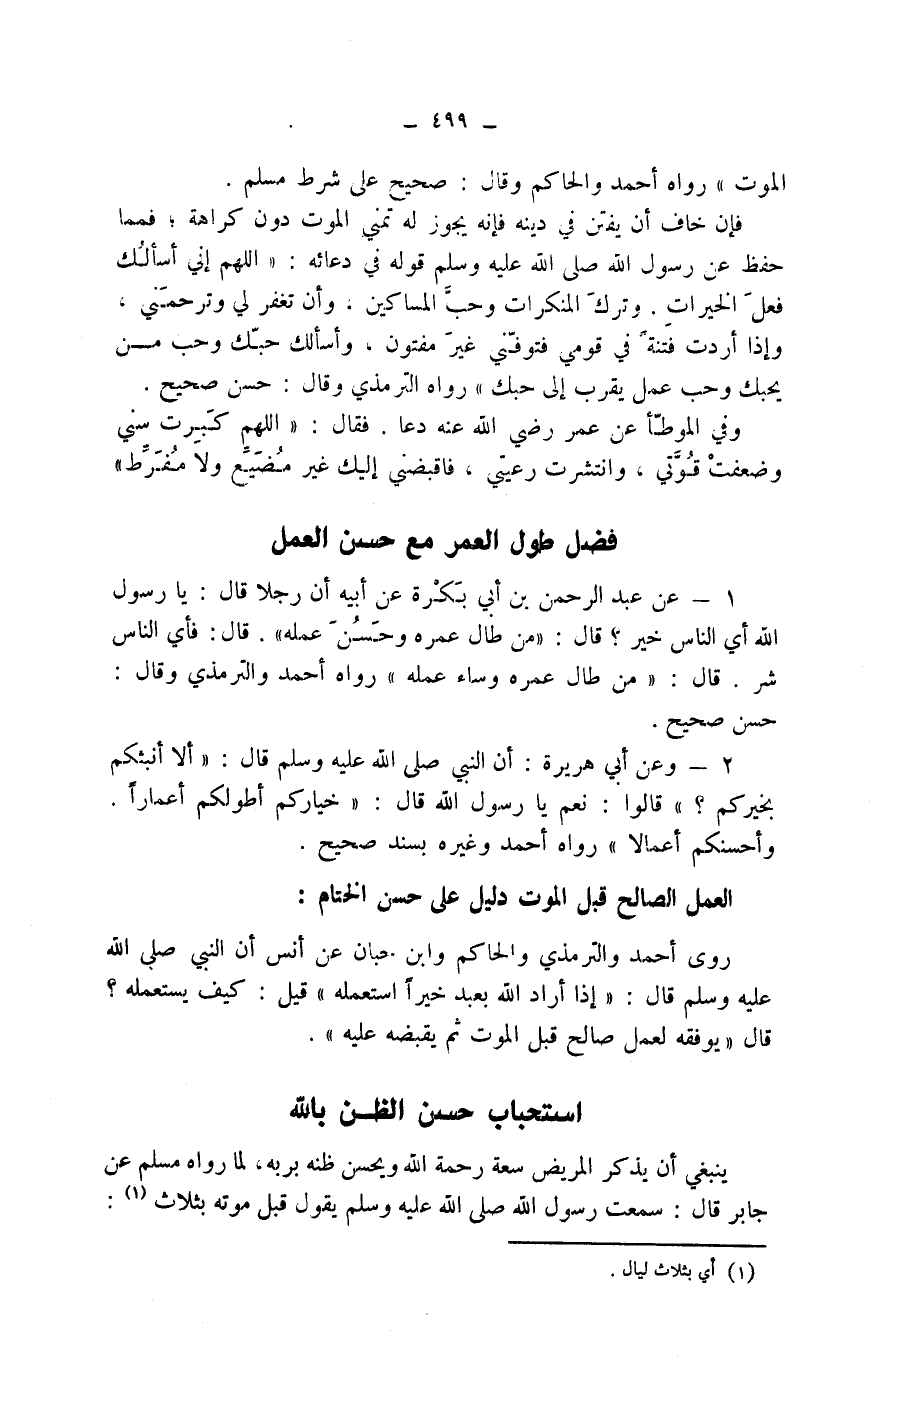 ـ ٤٩٩ ـ
الموت » رواه أحمد والحاكم وقال : صحيح على شرط مسلم .
فإن خاف أن يفتن في دينه فإنه يجوز له تمني الموت دون كراهة ؛ فمما
حفظ عن رسول الله صلى الله عليه وسلم قوله في دعائه : « اللهم إني أسألُك
فعلَ الخيرات . وتركَ المنكرات وحبَّ المساكين ، وأن تغفر لي وترحمَني ،
وإذا أردت فتنةً في قومي فتوفّني غيرَ مفتون ، وأسألك حبّك وحب مـــن
يحبك وحب عمل يقرب إلى حبك » رواه الترمذي وقال : حسن صحيح .
وفي الموطّأ عن عمر رضي الله عنه دعا . فقال : « اللهم كَبِرت سِني
وضعفتْ قُوَّتي ، وانتشرت رعيتي ، فاقبضني إليك غير مُضَيِّع ولا مُفَرِّط»
فضل طول العمر مع حسن العمل
١ ـ عن عبد الرحمن بن أبي بَكْرة عن أبيه أن رجلا قال : يا رسول
الله أي الناس خير ؟ قال : «من طال عمره وحَسُنَ عمله» . قال: فأي الناس
شر . قال : « من طال عمره وساء عمله » رواه أحمد والترمذي وقال :
حسن صحيح .
٢ ـ وعن أبي هريرة : أن النبي صلى الله عليه وسلم قال : « ألا أنبئكم
بخيركم ؟ » قالوا : نعم يا رسول الله قال : « خياركم أطولكم أعماراً .
وأحسنكم أعمالا » رواه أحمد وغيره بسند صحيح .
العمل الصالح قبل الموت دليل على حسن الختام :
روى أحمد والترمذي والحاكم وابن حبان عن أنس أن النبي صلى الله
عليه وسلم قال : « إذا أراد الله بعبد خيراً استعمله » قيل : كيف يستعمله ؟
قال « يوفقه لعمل صالح قبل الموت ثم يقبضه عليه » .
استحباب حسن الظـــن بالله
ينبغي أن يذكر المريض سعة رحمة الله ويحسن ظنه بربه، لما رواه مسلم عن
جابر قال : سمعت رسول الله صلى الله عليه وسلم يقول قبل موته بثلاث (١) :
(١) أي بثلاث ليال .